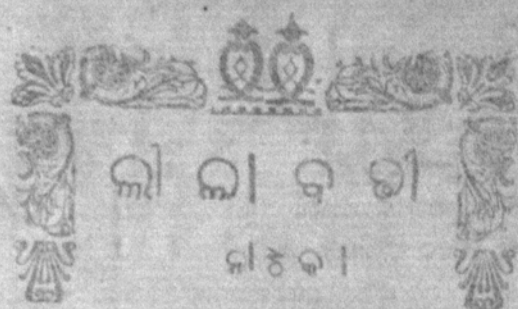 ଲୀଳାବତୀ
ନାଟକ।